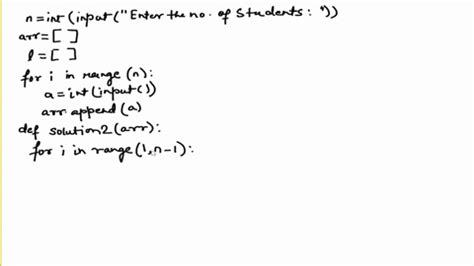 n=int(input("Enter the no. of Students: "))
arr=[ ]
l=[ ]
for i in range(n):
a=int(input())
arr.append(a)
def solution2(arr):
for i in range(1,n-1):